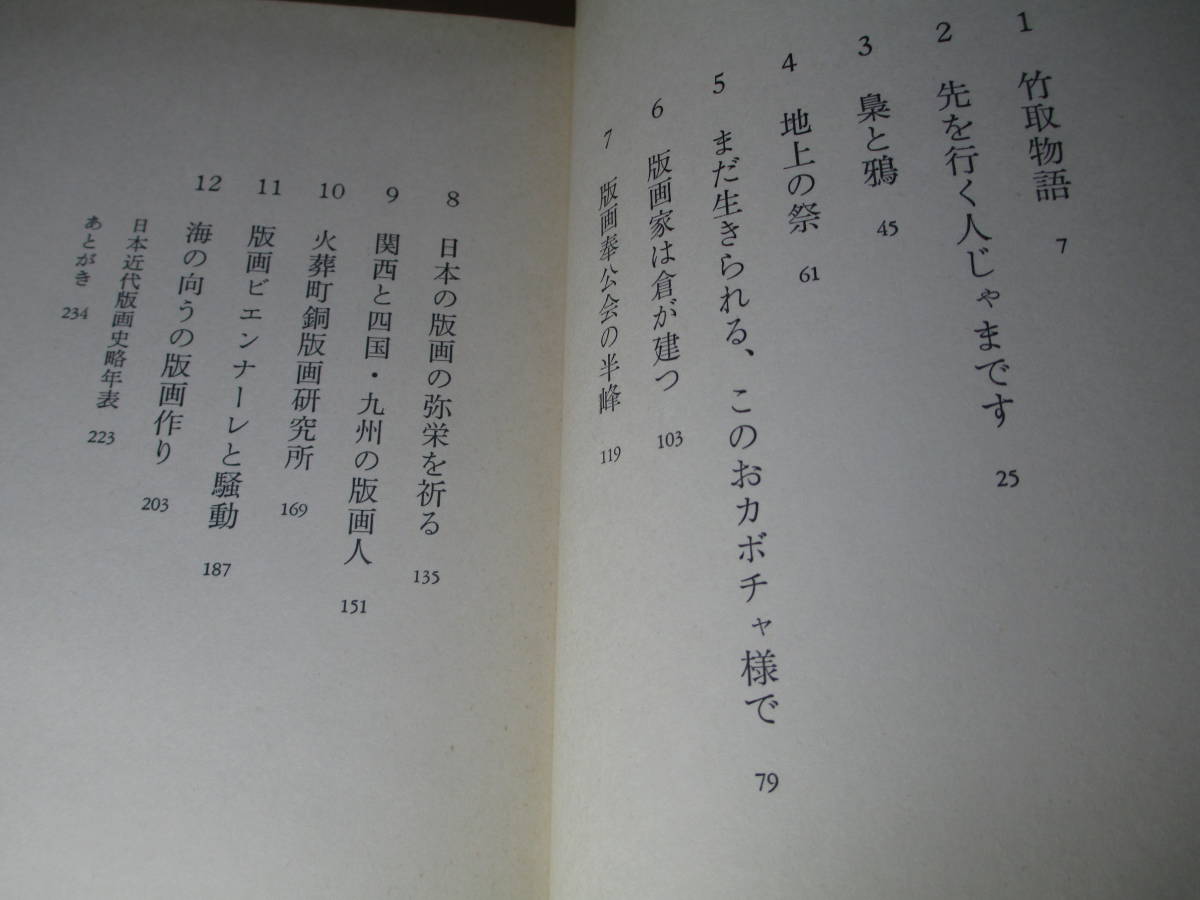 1 竹取物語 7
2 先を行く人じゃまです 25
3 梟と鴉 45
4 地上の祭 61
5 まだ生きられる、このおカボチャ様で 79
6 版画家は倉が建つ 103
7 版画奉公会の半峰 119
8 日本の版画の弥栄を祈る 135
9 関西と四国・九州の版画人 151
10 火葬町銅版画研究所 169
11 版画ビエンナーレと騒動 187
12 海の向うの版画作り 203
日本近代版画史略年表 223
あとがき 234